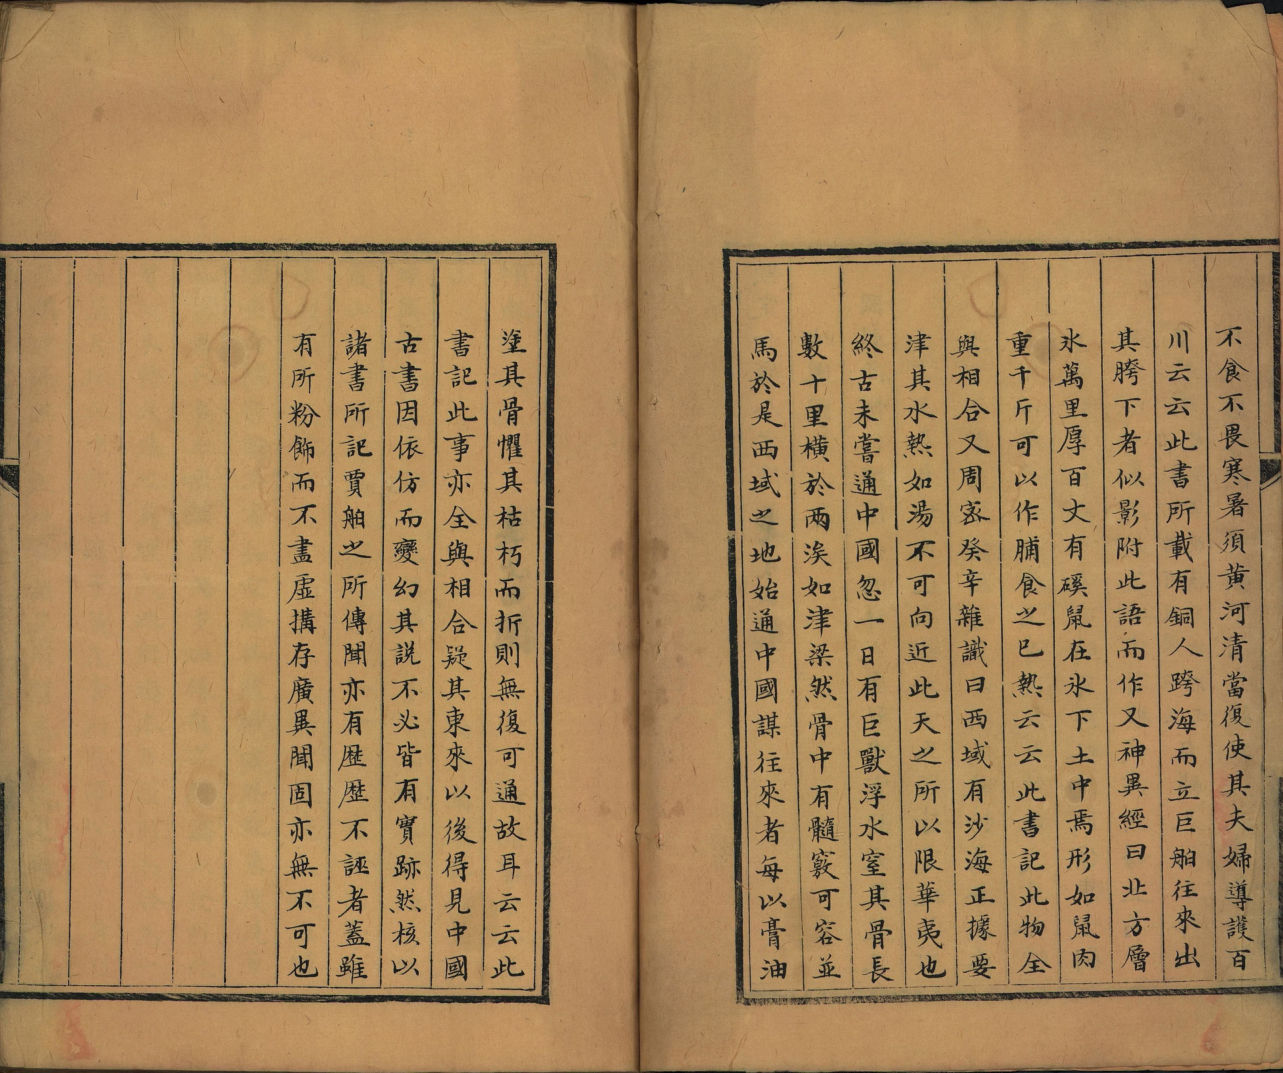 不食不畏寒暑須黄河清當復使其夫婦導䕶百
川云云此書所載有銅人跨海而立巨舶往來出
其胯下者似影附此語而作又神異經曰北方層
氷萬里厚百丈有磎鼠在氷下土中焉形如鼠肉
重千斤可以作脯食之已熱云云此書記此物全
與相合又周宻癸辛雜識曰西域有沙海正據要
津其水熱如湯不可向近此天之所以限華夷也
終古未嘗通中國忽一日有巨獸浮水窒其骨長
數十里横於兩涘如津梁然骨中有髓竅可容並
馬於是西域之地始通中國謀往來者每以膏油
塗其骨懼其枯朽而折則無復可通故耳云云此
書記此事亦全與相合疑其東來以後得見中國
古書因依仿而變幻其說不必皆有實跡然核以
諸書所記賈舶之所傳聞亦有歴歴不誣者蓋雖
有所粉飾而不盡虛搆存廣異聞固亦無不可也